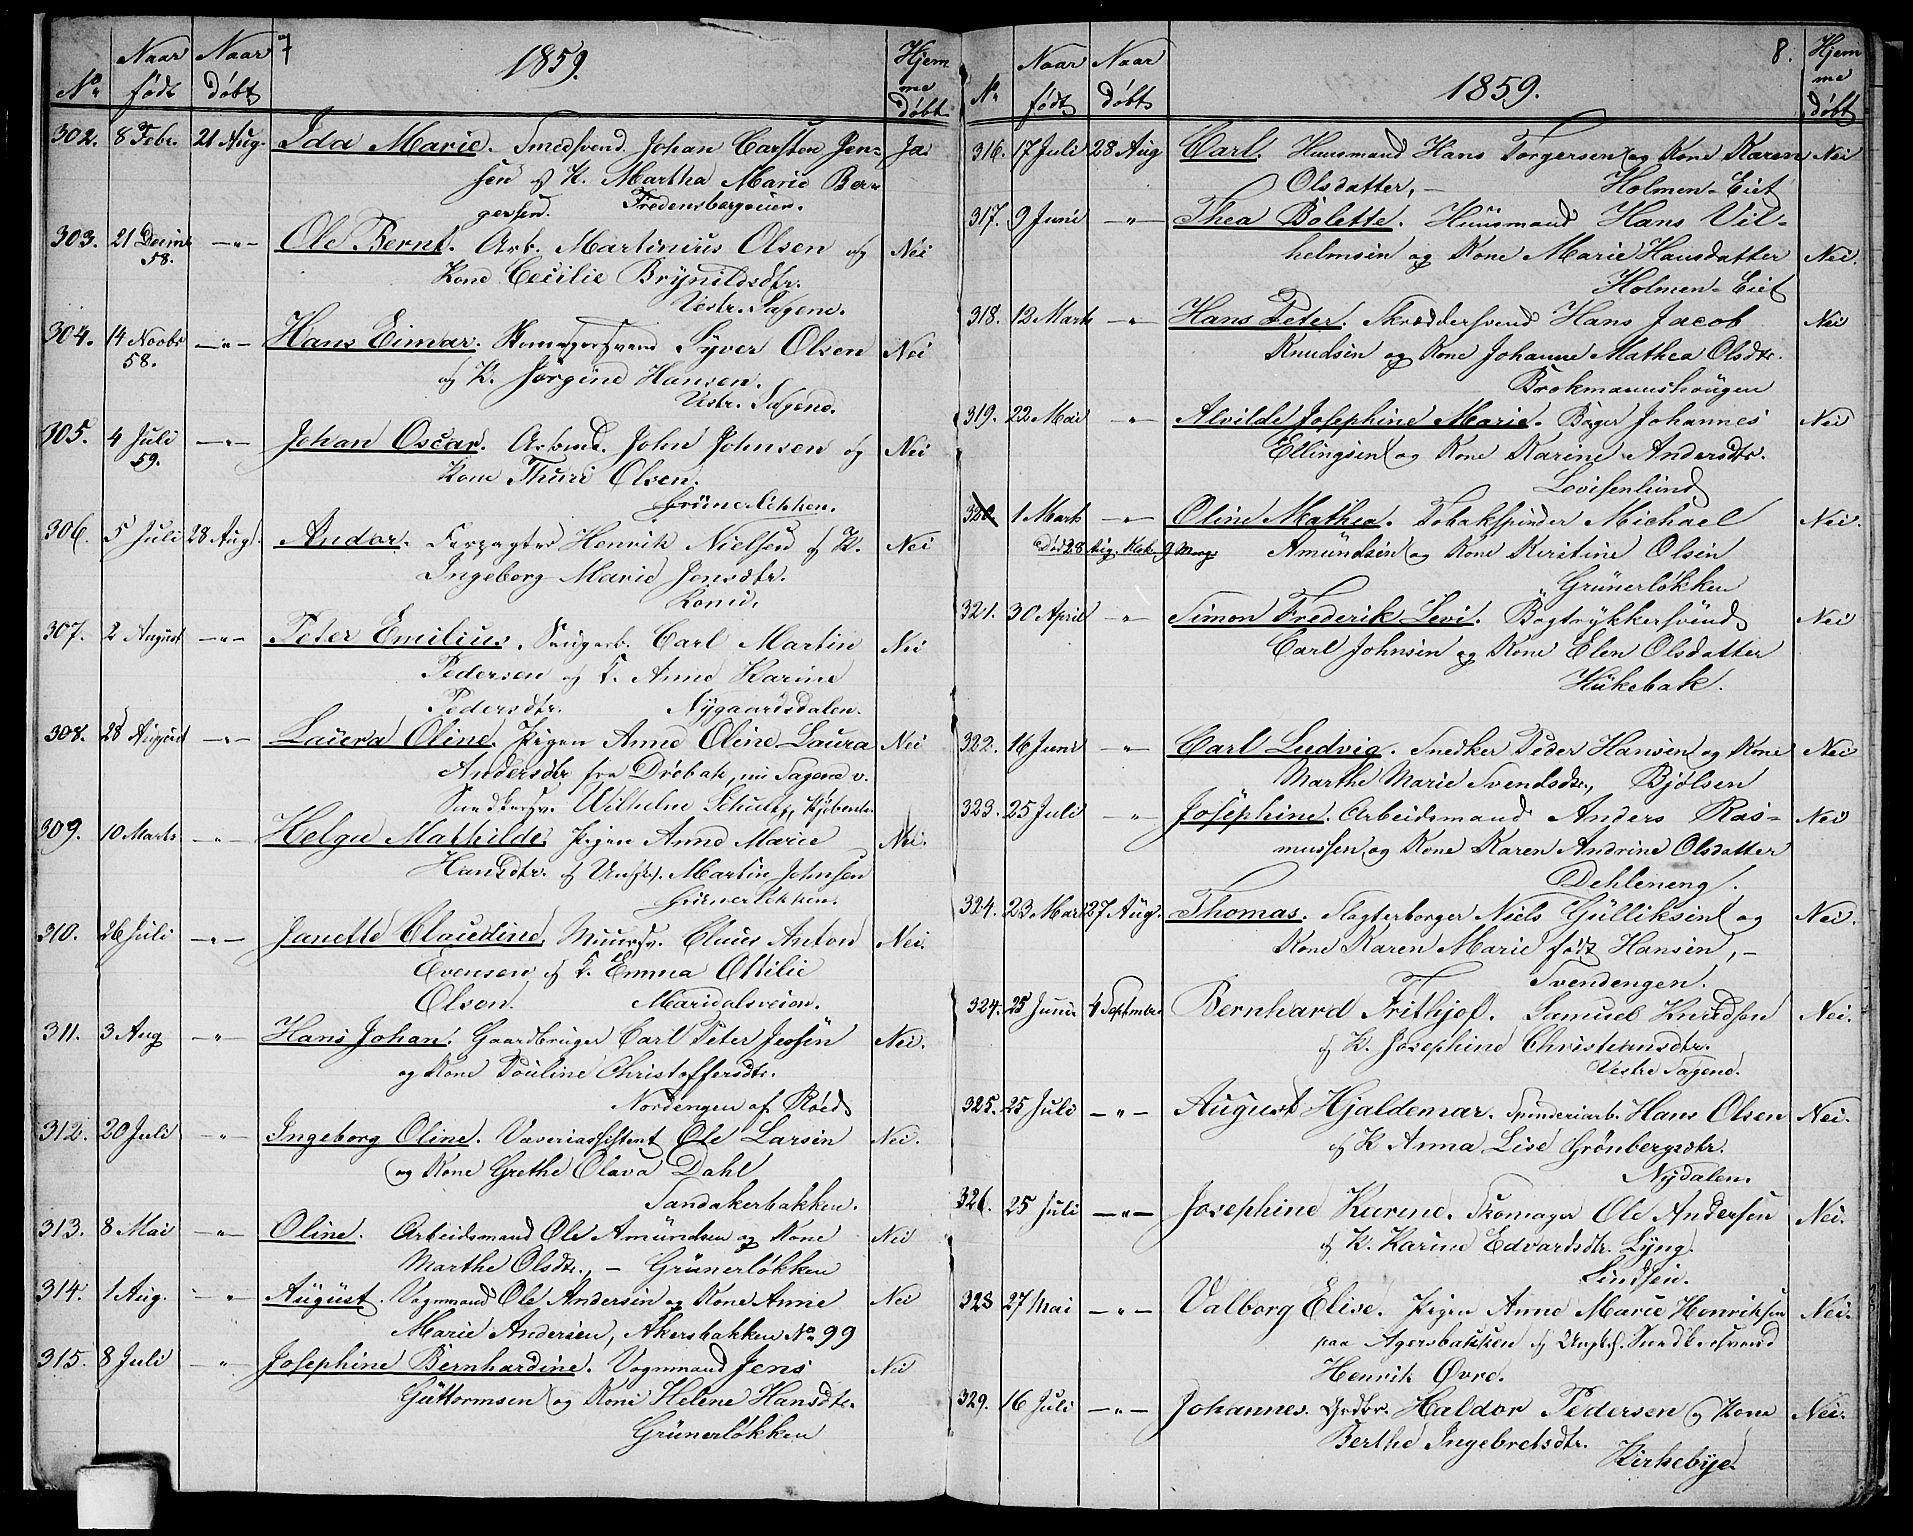 7
1859.
No Naar født Naar døbt Hjemmedøbt
302. 8 Febr. 21 Aug. Ida Marie. Smedsvend. Johan Carsten Jen- Ja.
sen & K. Martha Marie Ber-
gersen. Fredensborgveien.
303. 21 Decmb 58. —"— Ole Bernt. Arb. Martinius Olsen og Nei
Kone Cecilie Brynildsdtr.
Vestr. Sagene.
304. 14 Novbr 58. —"— Hans Eimar. Skomagersvend Syver Olsen Nei
& K. Jørgine Hansen.
Vestr. Sagene.
305. 4 Juli 59. —"— Johan Oscar. Arbmd. John Johnsen og Nei
Kone Thuri Olsen.
Grünerløkken.
306. 5 Juli 28 Aug. Andor. Forpagter Henrik Nielsen & K. Nei
Ingeborg Marie Jensdtr.
307. 2 August —"— Peter Emilius. Carl Martin Nei
Pedersen og K. Anne Karine
Pedersdtr. Nygaardsdalen.
308. 28 August —"— Laura Oline. Pigen Anne Oline Laura Nei
Andersdtr fra Drøbak, nu Sagene v.
Snedkersv. Wilhelm Schultz, Kjøbenh.
309. 10 Marts —"— Helga Mathilde. Pigen Anne Marie Nei.
Hansdtr. & Ungk. Martin Johnsen
Grünerløkken.
310. 26 Juli —"— Janette Claudine. Muursv. Claus Anton Nei.
Evensen & K. Emma Ottilie
Olsen. Maridalsveien.
311. 3 Aug —"— Hans Johan. Gaardbruger Carl Peter Jessen Nei.
og Kone Pouline Christoffersdtr.
Nordengen af Røed
312. 20 Juli —"— Ingeborg Oline. Væveriassistent Ole Larsen Nei.
og Kone Grethe Olava Dahl
Sandakerbakken.
313. 8 Mai —"— Oline. Arbeidsmand Ole Amundsen og Kone Nei
Marthe Olsdtr., — Grünerløkken
314. 1 Aug. —"— August. Vognmand Ole Andersen og Kone Anne Nei
Marie Andersen, Akersbakken No 99
315. 8 Juli —"— Josephine Bernhardine. Vognmand Jens Nei
Guttormsen og Kone Helene Hansdtr.
Grünerløkken
8.
1859.
No Naar født Naar døbt Hjemmedøbt
316. 17 Juli 28 Aug Carl. Huusmand Hans Torgersen og Kone Karen Nei
Olsdatter, — Holmen-Eiet
317. 9 Juni —"— Thea Bolette. Huusmand Hans Vil-
helmsen og Kone Marie Hansdatter Nei.
Holmen-Eiet
318. 12 Marts —"— Hans Peter. Skræddersvend Hans Jacob Nei
Knudsen og Kone Johanne Mathea Olsdtr.
Brokmannshougen
319. 22 Mai " Alvilde Josephine Marie. Bager Johannes Nei
Ellingsen og Kone Karine Andersdtr.
Lovisenlund
320 1 Marts —"— Oline Mathea. Tobakspinder Michael Nei.
Død 28 Aug. Klok. 9 Morg. Amundsen og Kone Kirstine Olsen
Grünerløkken
321. 30 April —"— Simon Frederik Levi. Bogtrykkersvend Nei
Carl Johnsen og Kone Elen Olsdatter
Hukebak.
322. 16 Juni —"— Carl Ludvig. Snedker Peder Hansen og Kone Nei
Marthe Marie Svendsdtr., Bjølsen
323. 25 Juli —"— Josephine. Arbeidsmand Anders Ras- Nei
mussen og Kone Karen Andrine Olsdatter
Dehleneng.
324. 23 Marts 27 Aug. Thomas. Slagterborger Niels Gulliksen og Nei.
Kone Karen Marie født Hansen, —
Svendengen.
324. 25 Juni 4 Septembr Bernhard Frithjof. Samuel Knudsen Nei.
& K. Josephine Christiansdtr.
Vestre Sagene.
325. 25 Juli —"— August Hjaldemar. Spinderiarb. Hans Olsen Nei.
& K Anna Lise Grønbergsdtr.
Nydalen.
326. 25 Juli —"— Josephine Karine. Skomager Ole Andersen Nei.
& K. Karine Edvardsdtr. Lyng.
328 27 Mai —"— Valborg Elise. Pigen Anne Marie Henriksen Nei.
paa Agersbakken & Ungk. Snedkersvend
Henrik Øvre.
329. 16 Juli —"— Johannes. Grdbr. Haldor Pedersen & Kone Nei.
Berthe Ingebretsdtr.
Kirkebye.